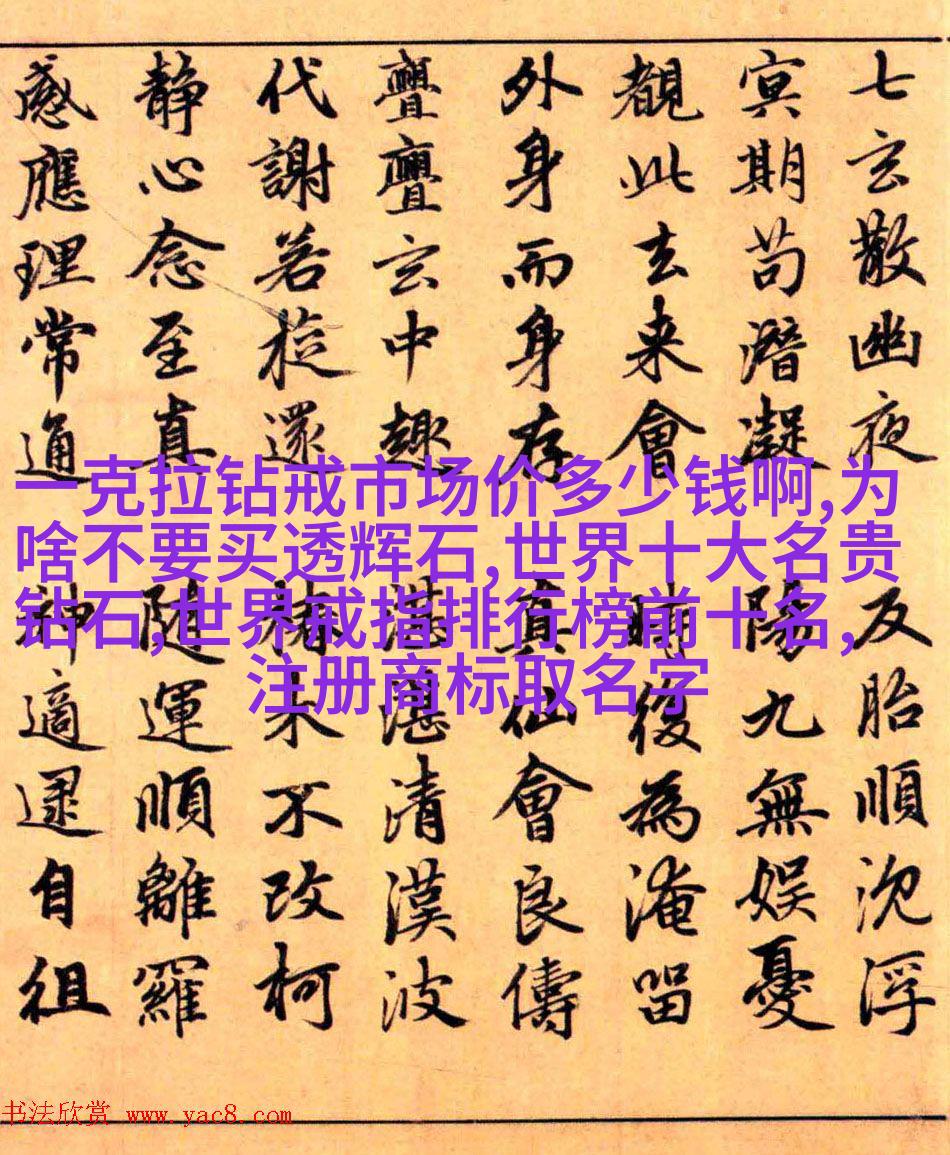 七玄散幽夜反胎順沉浮
冥期苟潛凝陽九無娱憂
覩此去来會時復為淹留
外身而身存真仙會良儔
亹亹玄中趣湛湛清漢波
代謝若旋還椿木不改柯
静心念至真随運順離羅
感應理常通神適逮自徂
一克拉钻戒市场价多少钱啊,为
啥不要买透辉石,世界十大名贵
钻石,世界戒指排行榜前十名,
注册商标取名字
书法欣赏 www.yac8.com